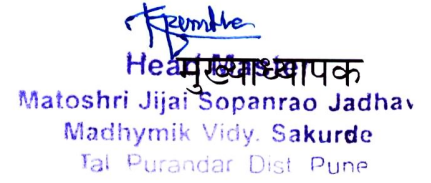 Head Master
मुख्याध्यापक
Matoshri Jijai Sopanrao Jadhav
Madhymik Vidy. Sakurde
Tal Purandar Dist Pune